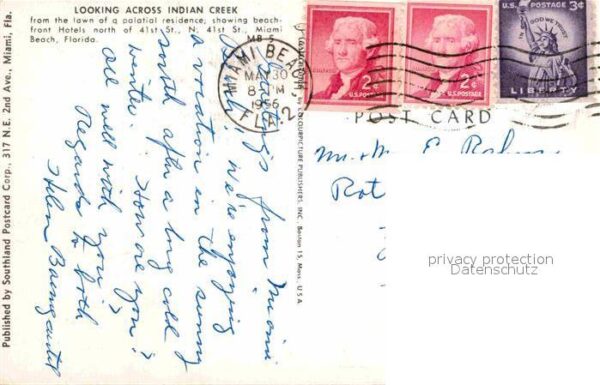 LOOKING ACROSS INDIAN CREEK
from the lawn of a palatial residence; showing beach-
front Hotels north of 41st St., N. 41st St., Miami
Beach, Florida.
MB 5
Published by Southland Postcard Corp., 317 N.E. 2nd Ave., Miami, Fla.
from Miami
we're enjoying
a vacation in the sunny
south after a long cold
winter. How are you?
all well with you?
Regards to both
Helen
by COLOURPICTURE PUBLISHERS, INC., Boston 15, Mass. U.S.A.
MIAMI BEACH
MAY 30
8 PM
1956
FLA. 2
2¢
U.S. POSTAGE
2¢
U.S. POSTAGE
U.S. POSTAGE 3¢
IN GOD WE TRUST
LIBERTY
POST CARD
Mr. & Mrs. E.
privacy protection
Datenschutz